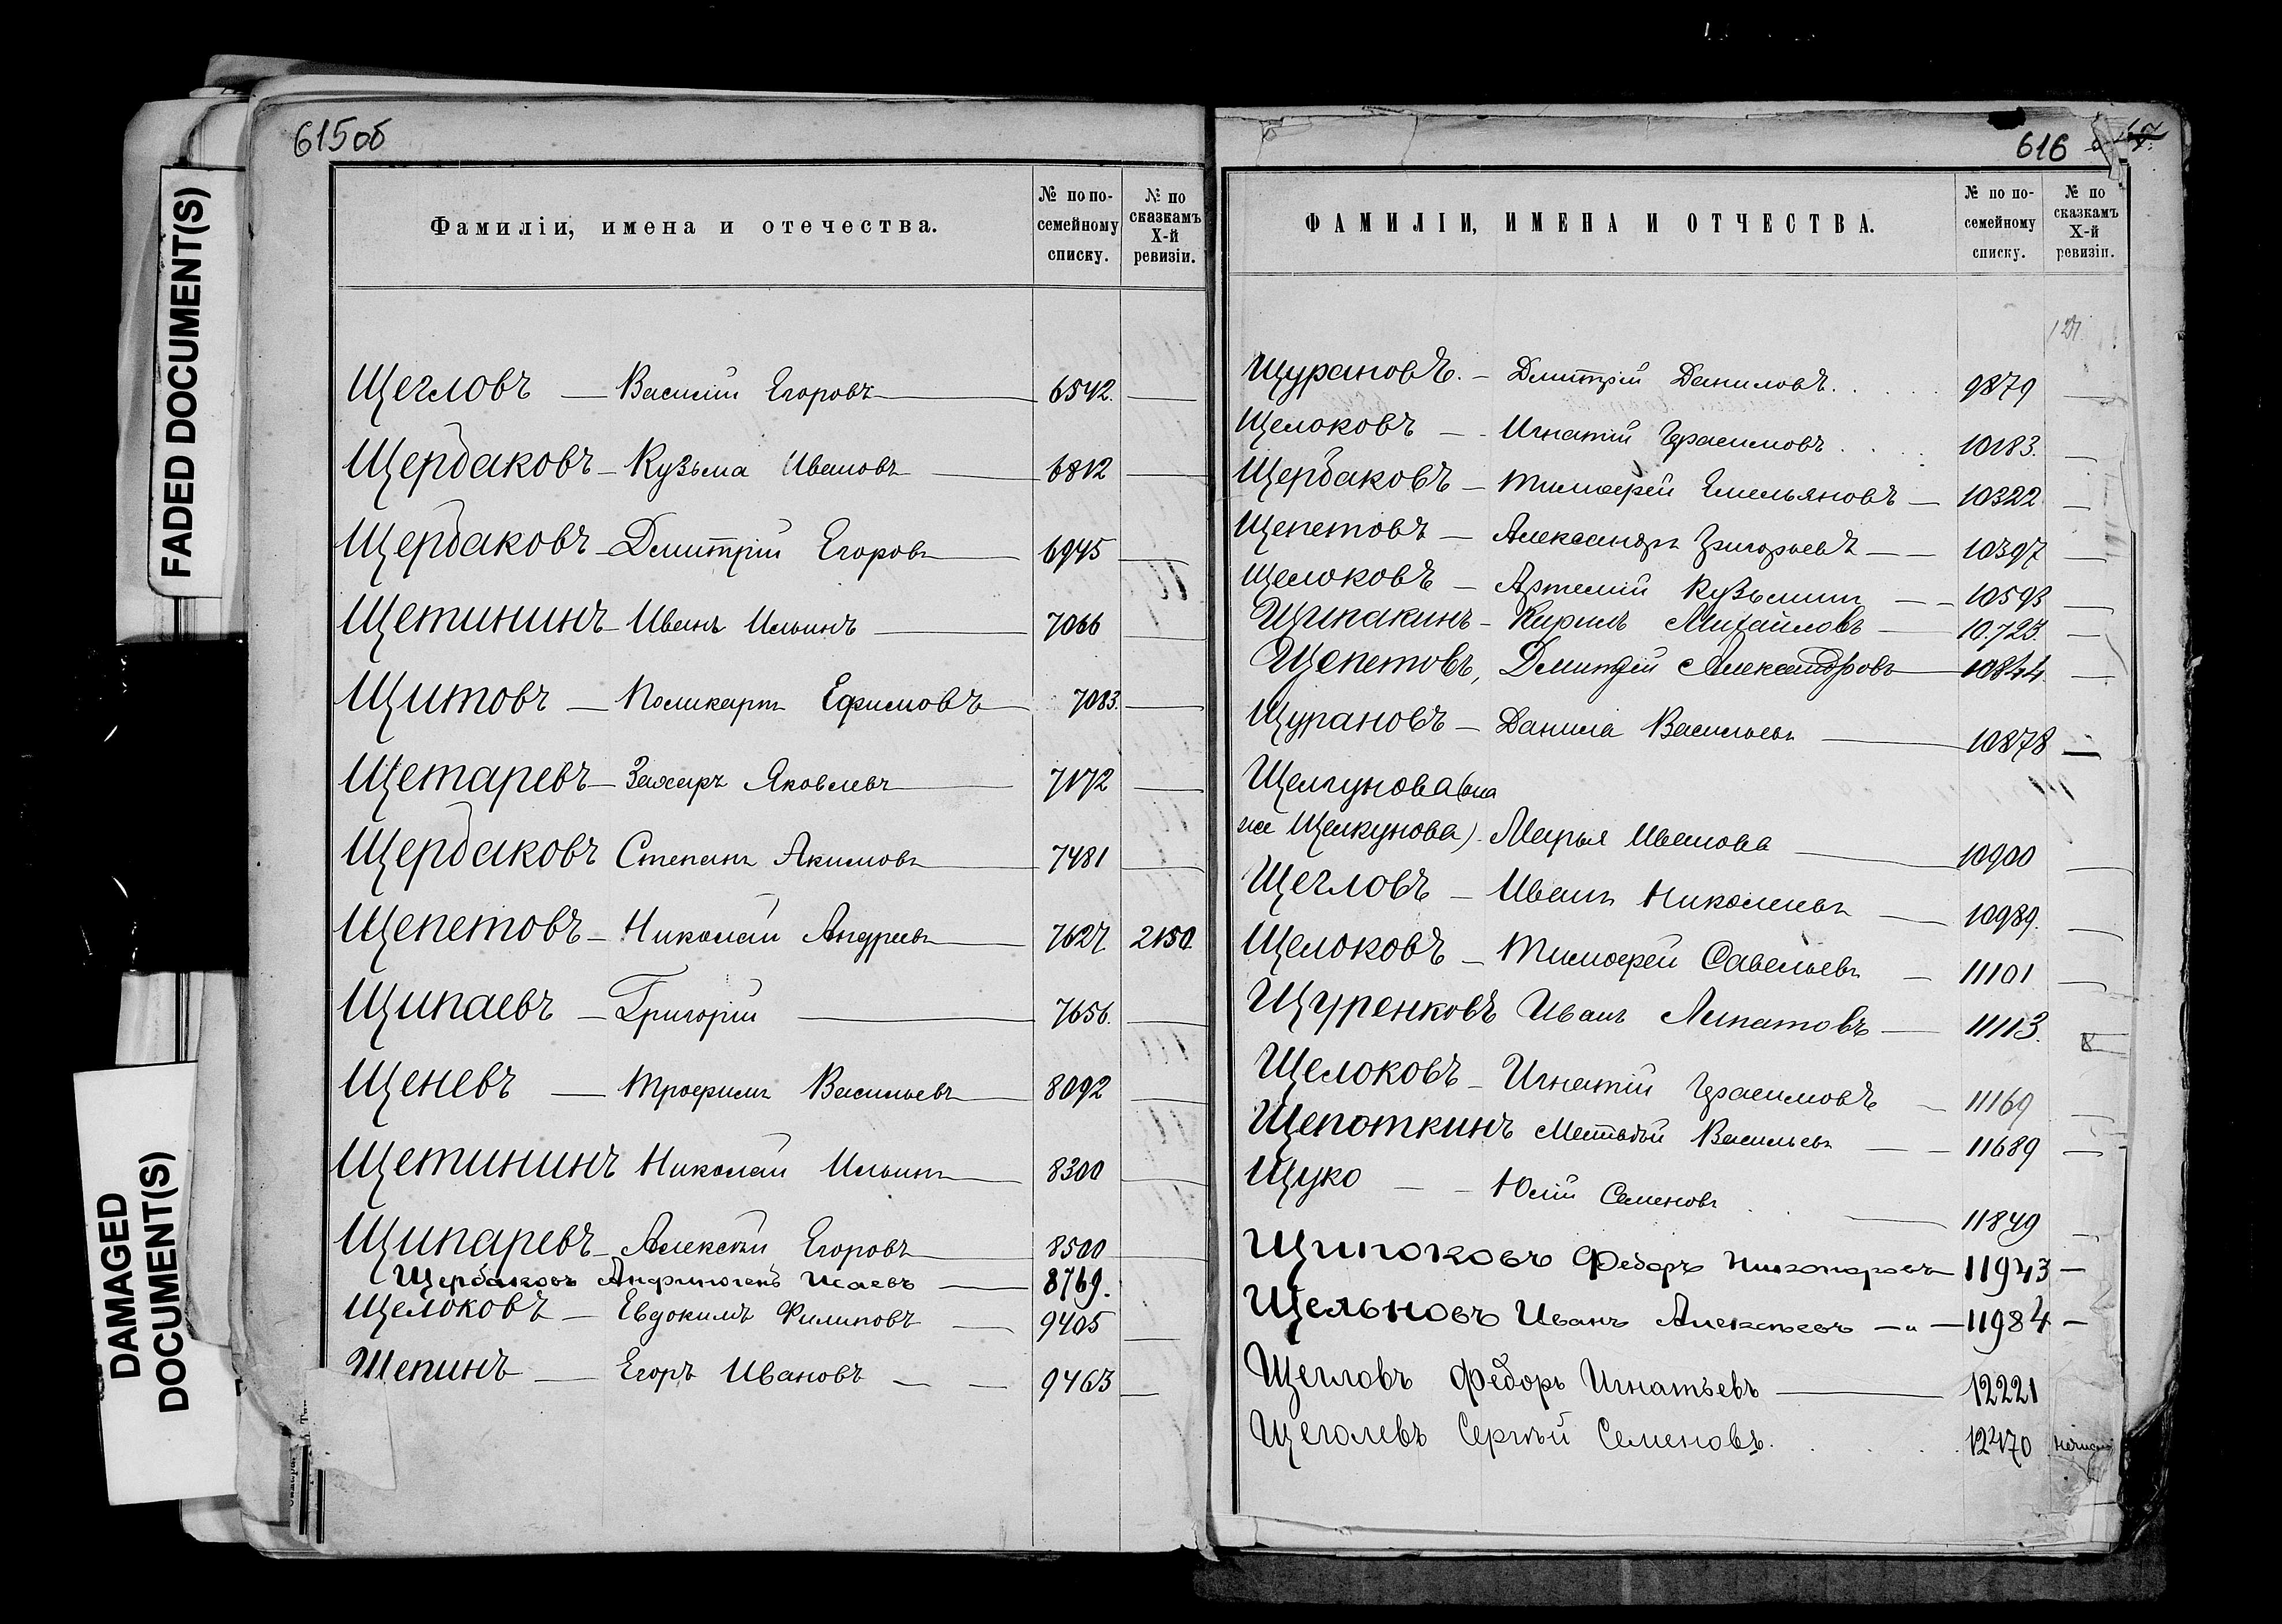 FADED DOCUMENT(S)
DAMAGED
DOCUMENT(S)
615об
Фамиліи, имена и отечества.
№ по по-
семейному
списку.
№ по
сказкамъ
X-й
ревизіи.
Щегловъ — Василій Егоровъ — 6542. —
Щербаковъ — Кузьма Ивановъ — 6812 —
Щербаковъ — Дмитрій Егоровъ — 6945 —
Щетининъ — Иванъ Ильинъ — 7066 —
Щитовъ — Поликарпъ Ефимовъ — 7083. —
Щетаревъ — Захаръ Яковлевъ — 7172 —
Щербаковъ Степанъ Акимовъ — 7481 —
Щепетовъ — Николай Андреевъ — 7627 2150.
Щипаевъ — Григорій — 7656. —
Щеневъ — Трофимъ Васильевъ — 8092 —
Щетининъ Николай Ильинъ — 8300 —
Щипаревъ — Алексѣй Егоровъ — 8500 —
Щербаковъ Андриянъ Исаевъ — 8769.
Щелоковъ — Евдокимъ Филиповъ — 9405 —
Щепинъ — Егоръ Ивановъ — — 9463 —
616
ФАМИЛІИ, ИМЕНА И ОТЧЕСТВА.
№ по по-
семейному
списку.
№ по
сказкамъ
X-й
ревизіи.
Щурановъ. — Дмитрій Даниловъ. . . . . 9879 —
Щелоковъ — Игнатій Герасимовъ . . . . 10183. —
Щербаковъ — Тимофей Емельяновъ — 10322 —
Щепетовъ — Александръ Григорьевъ — — 10397 —
Щелоковъ — Артемій Кузьминъ — — 10593 —
Щипакинъ — Кирилъ Михайловъ — 10.723. —
Щепетовъ, Дмитрій Александровъ — 10844. —
Щурановъ — Данила Васильевъ — 10878 —
Щелгунова (она
же Щелкунова). Марья Иванова — 10900 —
Щегловъ — Иванъ Николаевъ — 10989. —
Щелоковъ — Тимофей Савельевъ — 11101 —
Щуренковъ Иванъ Липатовъ — 11113.
Щелоковъ — Игнатій Герасимовъ — 11169 —
Щепоткинъ Матвѣй Васильевъ — — 11689 —
Щуко — — Юлій Семеновъ — 11849 —
Щипоковъ Федоръ Никоноровъ — 11943 —
Щельновъ Иванъ Алексѣевъ — „ — 11984 —
Щегловъ Федоръ Игнатьевъ — 12221
Щеголевъ Сергѣй Семеновъ. . . . . 12470